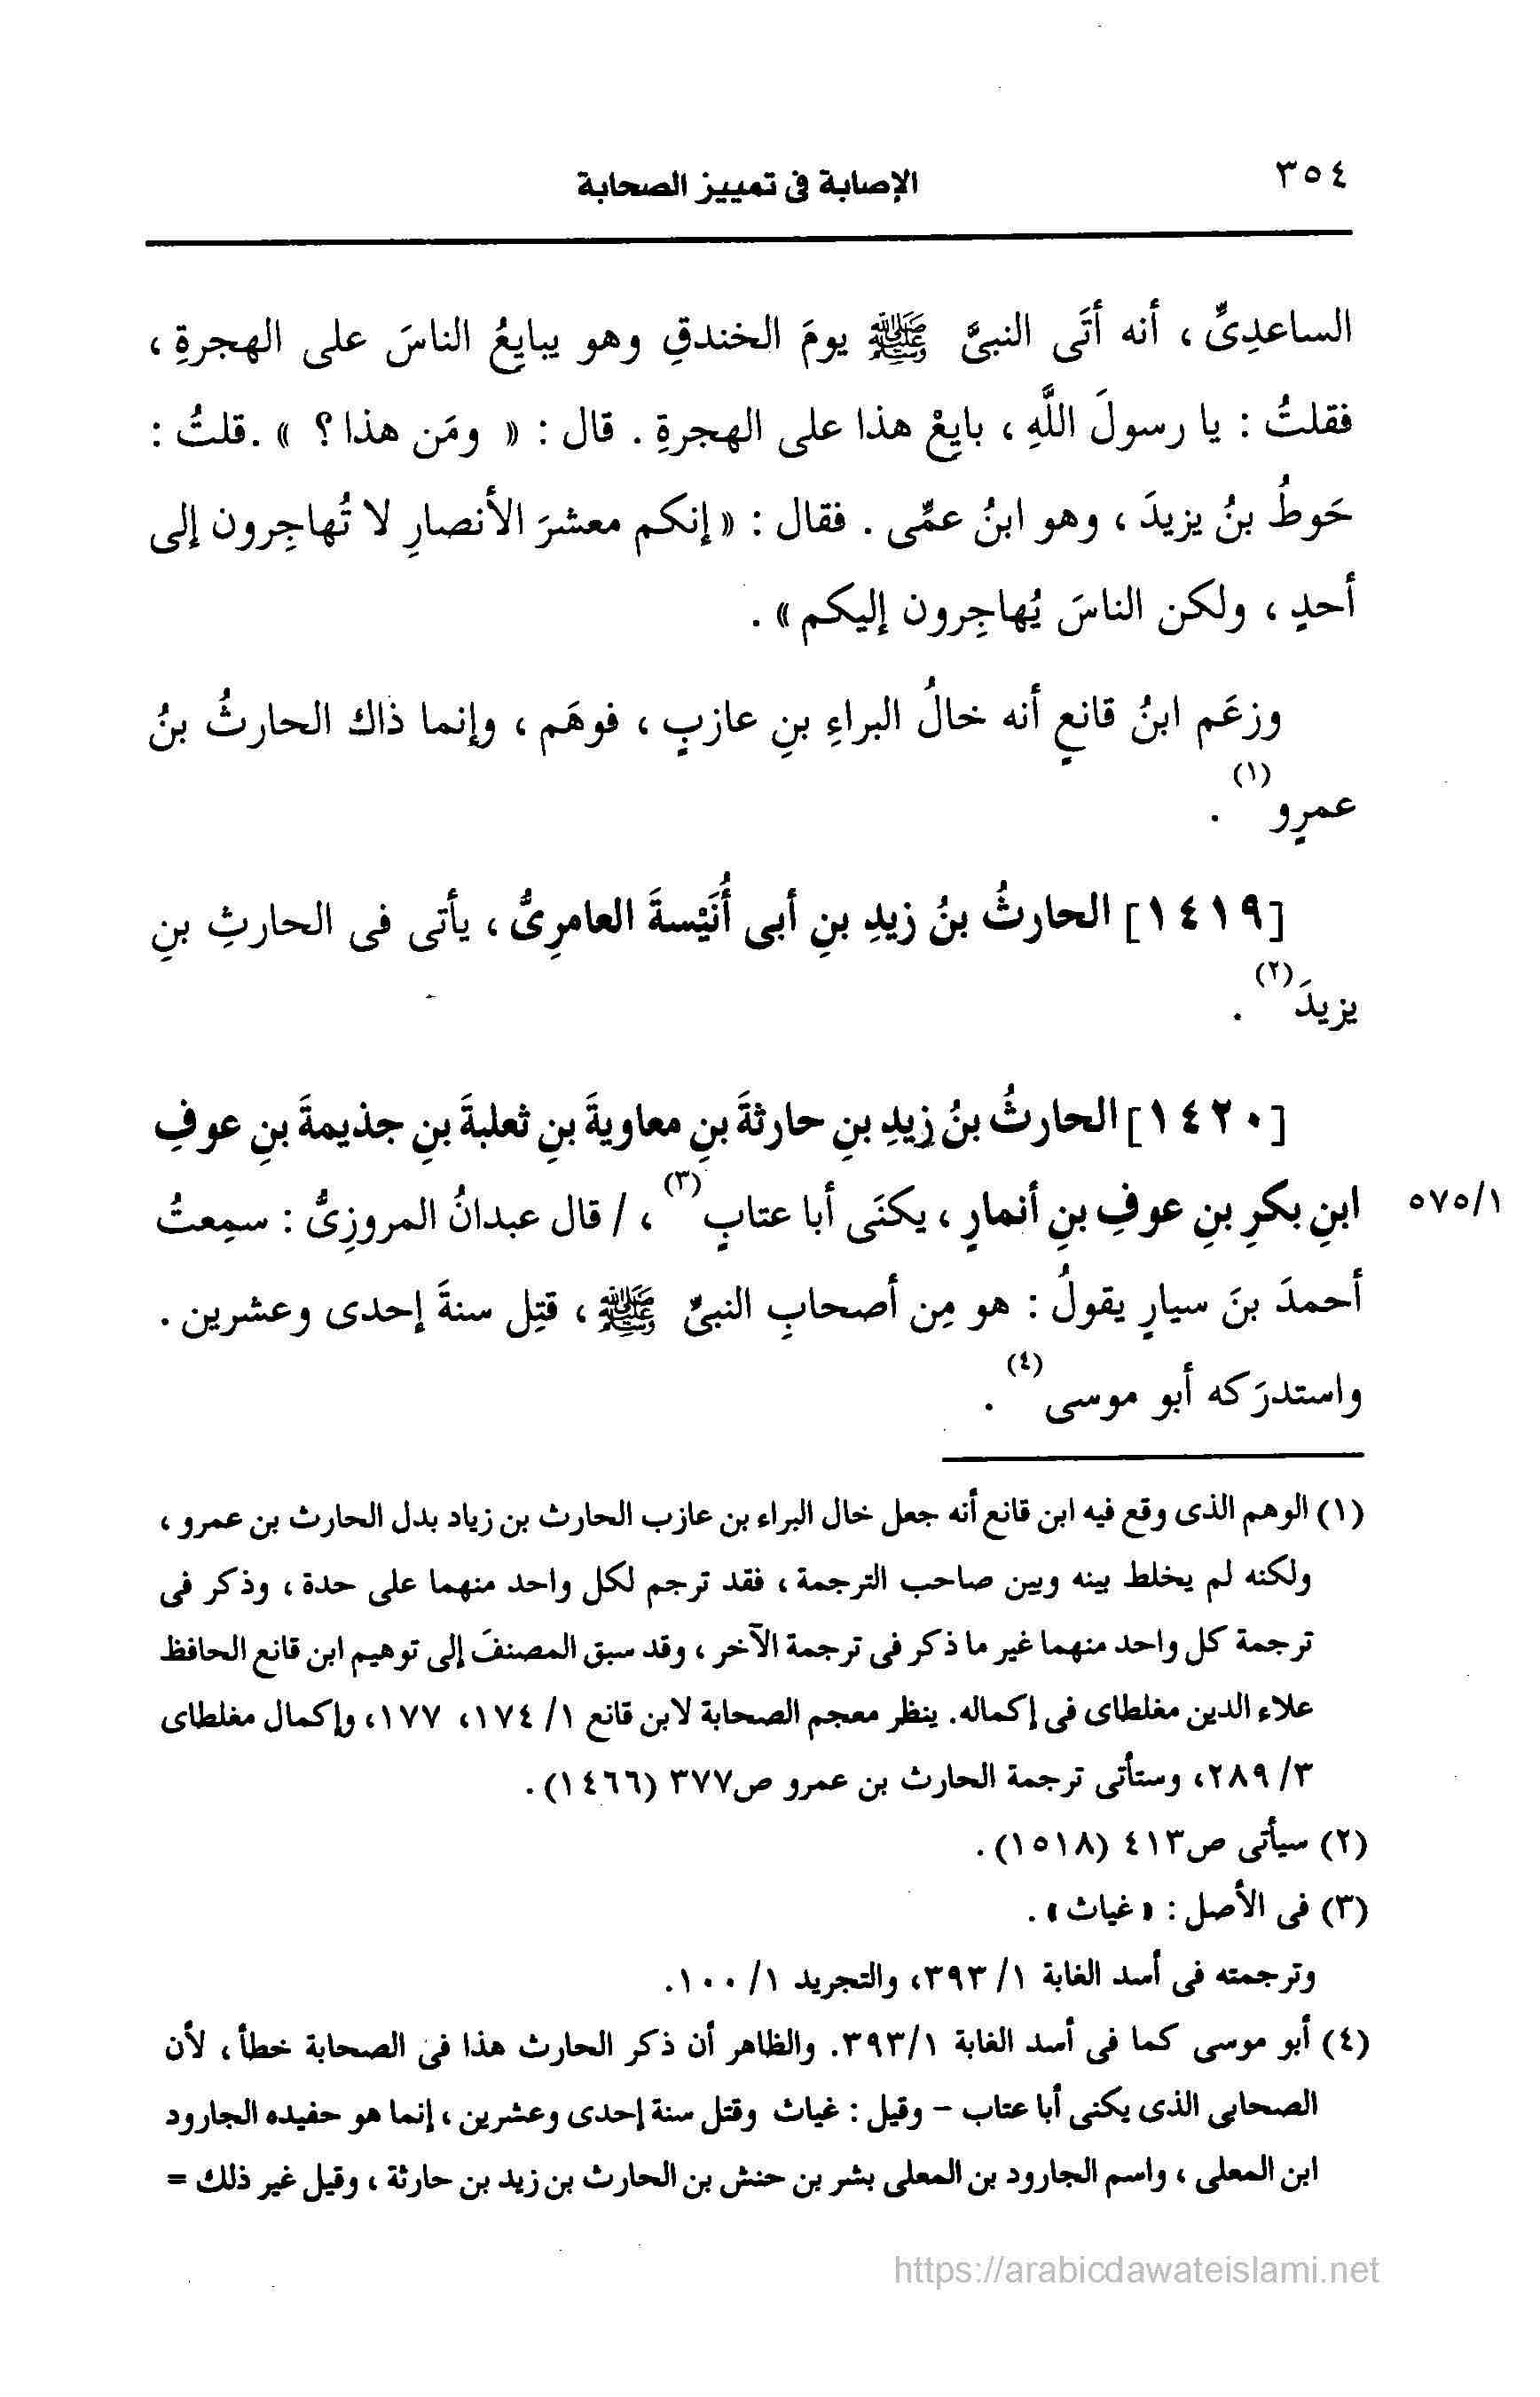 ٣٥٤
الإصابة فى تمييز الصحابة
الساعدِىِّ ، أنه أتَى النبىَّ ﷺ يومَ الخندقِ وهو يبايِعُ الناسَ على الهجرةِ ،
فقلتُ : يا رسولَ اللَّهِ ، بايِعْ هذا على الهجرةِ . قال : « ومَن هذا ؟ » .قلتُ :
حَوطُ بنُ يزيدَ ، وهو ابنُ عمِّى . فقال : « إنكم معشرَ الأنصارِ لا تُهاجِرون إلى
أحدٍ ، ولكن الناسَ يُهاجِرون إليكم » .
وزعَم ابنُ قانعٍ أنه خالُ البراءِ بنِ عازبٍ ، فوهَم ، وإنما ذاك الحارثُ بنُ
عمرٍو (١) .
[١٤١٩] الحارثُ بنُ زيدِ بنِ أبى أُنَيْسةَ العامرِىُّ ، يأتى فى الحارثِ بنِ
يزيدَ (٢) .
[١٤٢٠] الحارثُ بنُ زيدِ بنِ حارثةَ بنِ معاويةَ بنِ ثعلبةَ بنِ جذيمةَ بنِ عوفِ
ابنِ بكرِ بنِ عوفِ بنِ أنمارٍ ، يكنَى أبا عتابٍ (٣) ، / قال عبدانُ المروزِىُّ : سمِعتُ
٥٧٥/١
أحمدَ بنَ سيارٍ يقولُ : هو مِن أصحابِ النبىِّ ﷺ ، قتِل سنةَ إحدى وعشرين .
واستدرَكه أبو موسى (٤) .
(١) الوهم الذى وقع فيه ابن قانع أنه جعل خال البراء بن عازب الحارث بن زياد بدل الحارث بن عمرو ،
ولكنه لم يخلط بينه وبين صاحب الترجمة ، فقد ترجم لكل واحد منهما على حدة ، وذكر فى
ترجمة كل واحد منهما غير ما ذكر فى ترجمة الآخر ، وقد سبق المصنفَ إلى توهيم ابن قانع الحافظ
علاء الدين مغلطاى فى إكماله. ينظر معجم الصحابة لابن قانع ١/ ١٧٤، ١٧٧، وإكمال مغلطاى
٣/ ٢٨٩، وستأتى ترجمة الحارث بن عمرو ص٣٧٧ (١٤٦٦) .
(٢) سيأتى ص٤١٣ (١٥١٨) .
(٣) فى الأصل : « غياث » .
وترجمته فى أسد الغابة ١/ ٣٩٣، والتجريد ١/ ١٠٠.
(٤) أبو موسى كما فى أسد الغابة ٣٩٣/١. والظاهر أن ذكر الحارث هذا فى الصحابة خطأ ، لأن
الصحابى الذى يكنى أبا عتاب - وقيل : غياث وقتل سنة إحدى وعشرين ، إنما هو حفيده الجارود
ابن المعلى ، واسم الجارود بن المعلى بشر بن حنش بن الحارث بن زيد بن حارثة ، وقيل غير ذلك =
https://arabicdawateislami.net